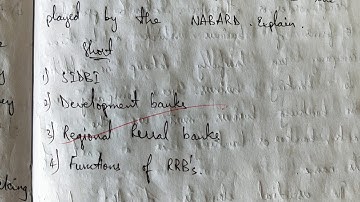 played by the NABARD. Explain.
Short
1) SIDBI
2) Development banks
3) Regional Rural banks
4) Functions of RRB's.